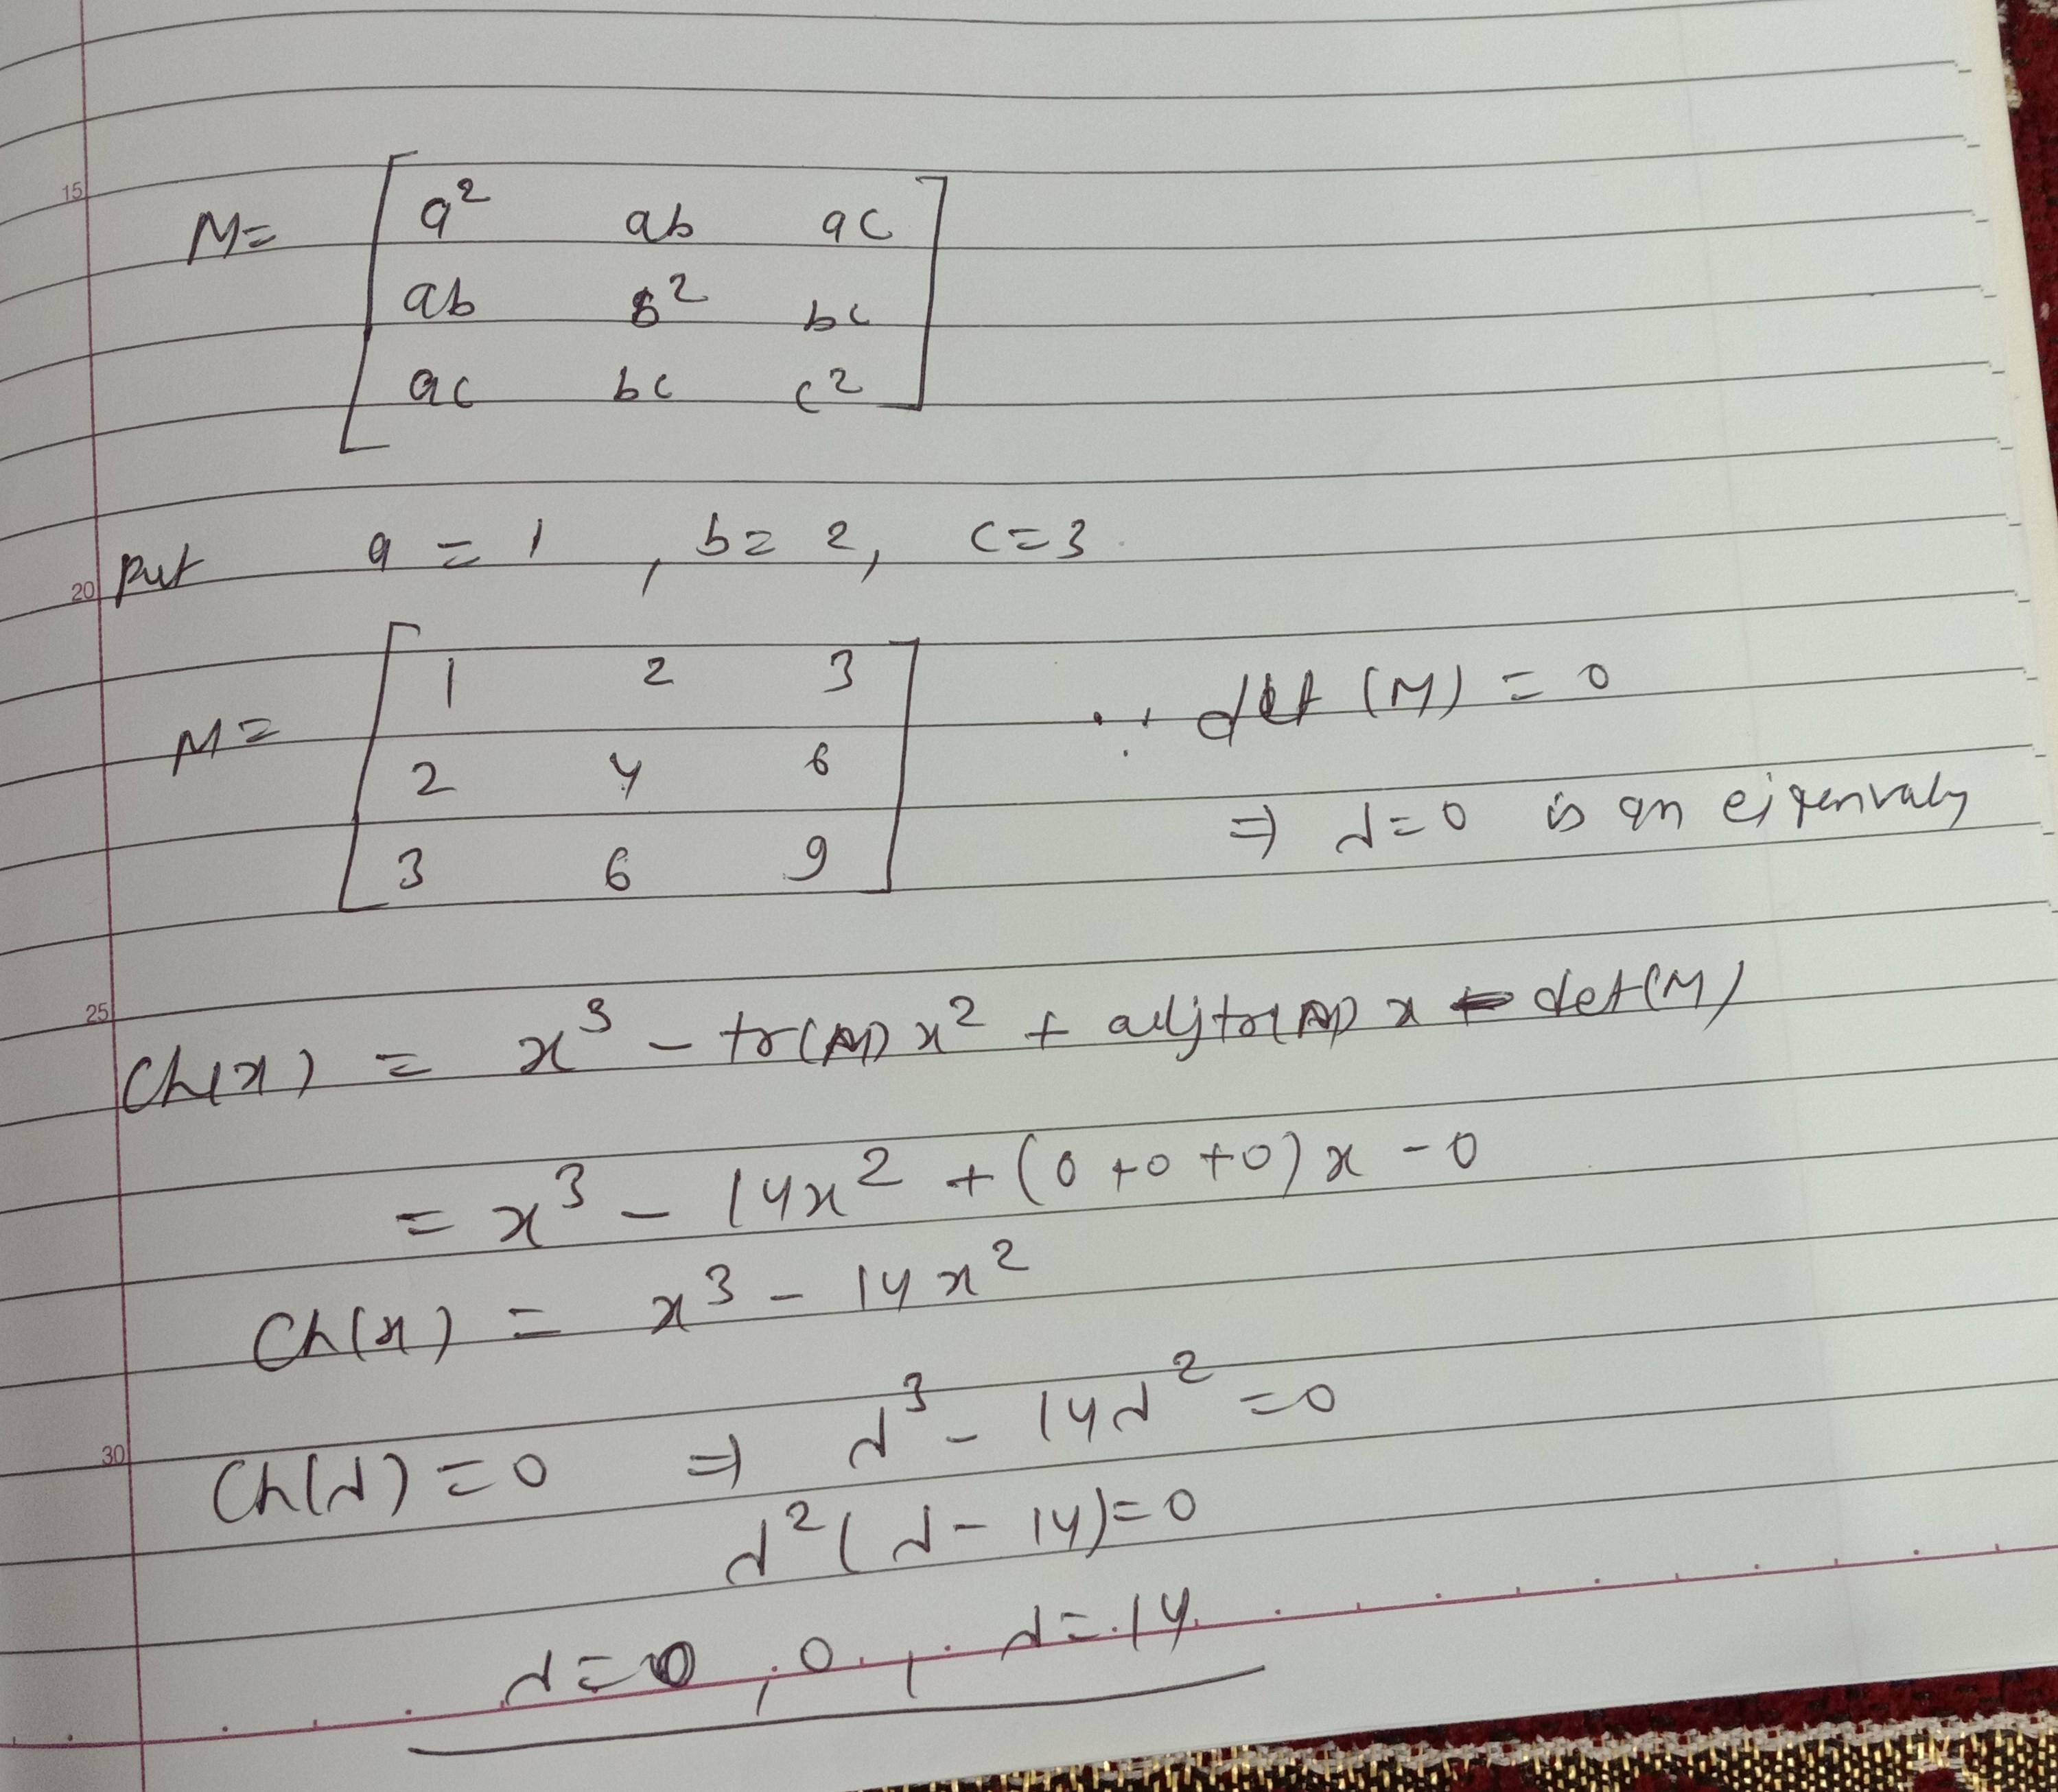 15
M= [ a² ab ac
ab b² bc
ac bc c² ]
20
Put a = 1 , b = 2, c = 3
M = [ 1 2 3
2 4 6
3 6 9 ]
∵ det (M) = 0
⇒ λ=0 is an
25
Ch(x) = x³ - tr(M) x² + adjtr(M) x - det(M)
= x³ - 14x² + (0 + 0 + 0) x - 0
Ch(x) = x³ - 14x²
30
Ch(λ) = 0 ⇒ λ³ - 14λ² = 0
λ² (λ - 14) = 0
λ = 0 , 0 , λ = 14